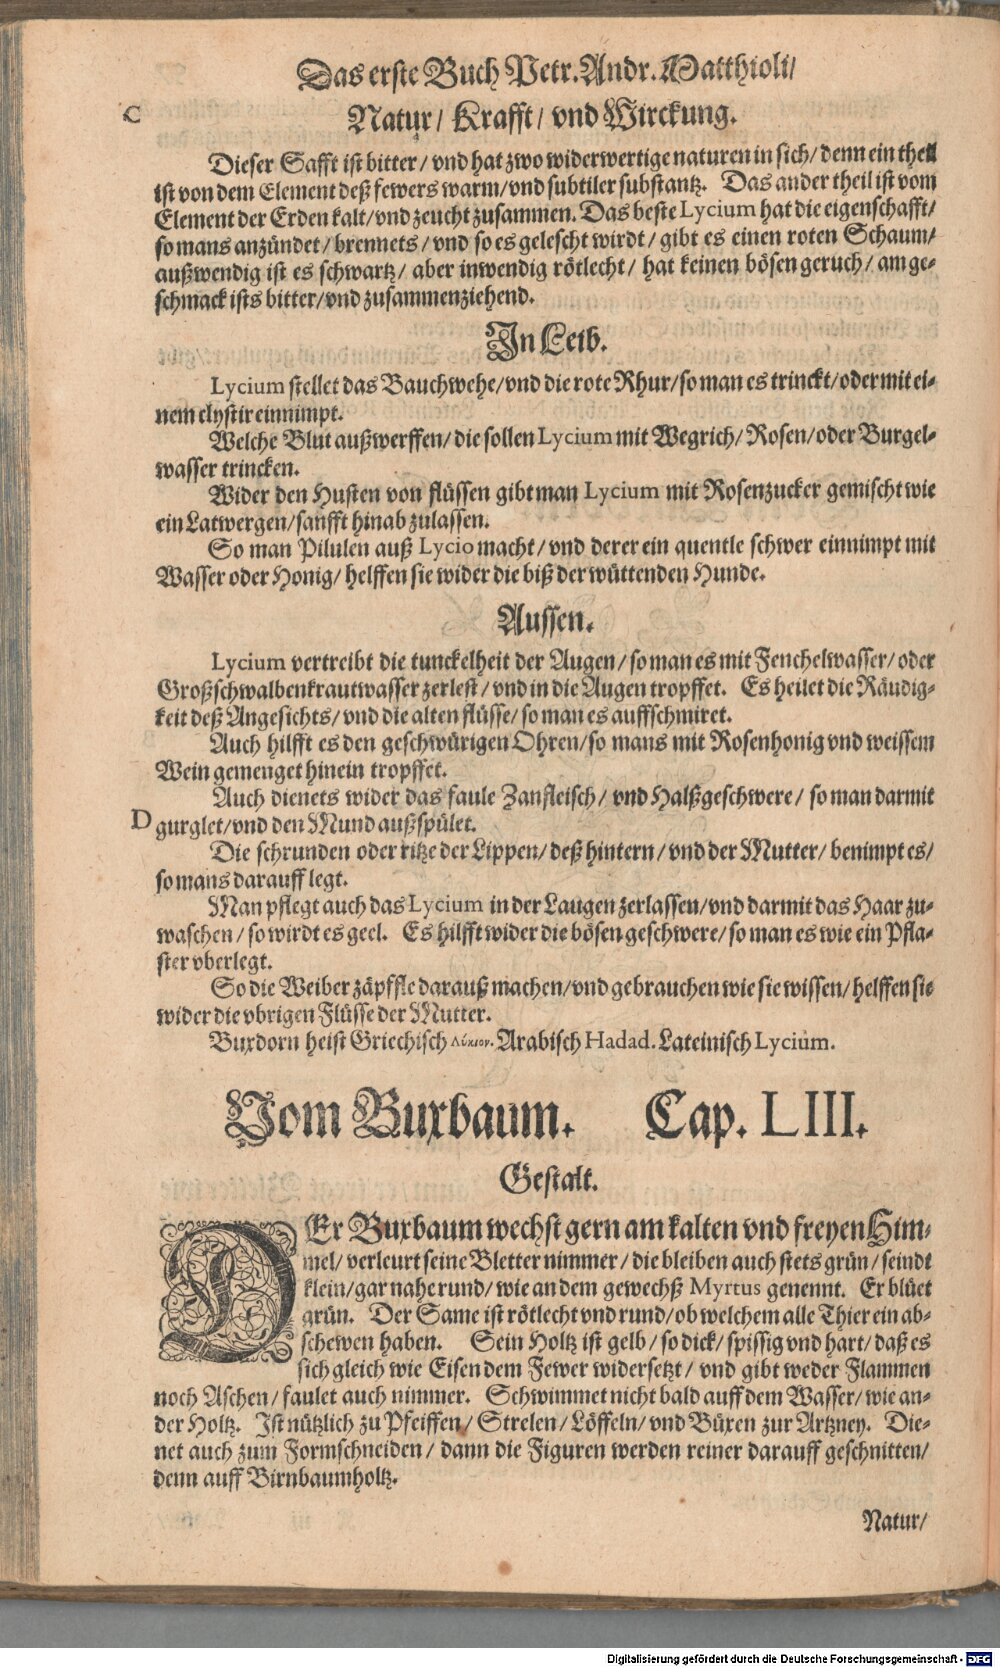 Das erste Buch Petr. Andr. Matthioli/
C
Natur/ Krafft/ vnd Wirckung.
Dieser Safft ist bitter/ vnd hat zwo widerwertige naturen in sich/ denn ein theil
ist von dem Element deß fewers warm/ vnd subtiler substantz. Das ander theil ist vom
Element der Erden kalt/ vnd zeucht zusammen. Das beste Lycium hat die eigenschafft/
so mans anzündet/ brennets/ vnd so es gelescht wirdt/ gibt es einen roten Schaum/
außwendig ist es schwartz/ aber inwendig rötlecht/ hat keinen bösen geruch/ am ge-
schmack ists bitter/ vnd zusammenziehend.
In Leib.
Lycium stellet das Bauchwehe/ vnd die rote Rhur/ so man es trinckt/ oder mit ei-
nem clystir einnimpt.
Welche Blut außwerffen/ die sollen Lycium mit Wegrich/ Rosen/ oder Burgel-
wasser trincken.
Wider den Husten von flüssen gibt man Lycium mit Rosenzucker gemischt wie
ein Latwergen/ sanfft hinab zulassen.
So man Pilulen auß Lycio macht/ vnd derer ein quentle schwer einnimpt mit
Wasser oder Honig/ helffen sie wider die biß der wüttenden Hunde.
Aussen.
Lycium vertreibt die tunckelheit der Augen/ so man es mit Fenchelwasser/ oder
Großschwalbenkrautwasser zerlest/ vnd in die Augen tropffet. Es heilet die Räudig-
keit deß Angesichts/ vnd die alten flüsse/ so man es auffschmiret.
Auch hilfft es den geschwürigen Ohren/ so mans mit Rosenhonig vnd weissem
Wein gemenget hinein tropffet.
Auch dienets wider das faule Zanfleisch/ vnd Halßgeschwere/ so man darmit
D
gurglet/ vnd den Mund außspület.
Die schrunden oder ritze der Lippen/ deß hintern/ vnd der Mutter/ benimpt es/
so mans darauff legt.
Man pflegt auch das Lycium in der Laugen zerlassen/ vnd darmit das Haar zu-
waschen/ so wirdt es geel. Es hilfft wider die bösen geschwere/ so man es wie ein Pfla-
ster vberlegt.
So die Weiber zäpffle darauß machen/ vnd gebrauchen wie sie wissen/ helffen sie
wider die vbrigen Flüsse der Mutter.
Buxdorn heist Griechisch Λύκιον. Arabisch Hadad. Lateinisch Lycium.
Vom Buxbaum. Cap. LIII.
Gestalt.
DEr Buxbaum wechst gern am kalten vnd freyen Him-
mel/ verleurt seine Bletter nimmer/ die bleiben auch stets grün/ seindt
klein/ gar nahe rund/ wie an dem gewechß Myrtus genennt. Er blüet
grün. Der Same ist rötlecht vnd rund/ ob welchem alle Thier ein ab-
schewen haben. Sein Holtz ist gelb/ so dick/ spissig vnd hart/ daß es
sich gleich wie Eisen dem Fewer widersetzt/ vnd gibt weder Flammen
noch Aschen/ faulet auch nimmer. Schwimmet nicht bald auff dem Wasser/ wie an-
der Holtz. Ist nützlich zu Pfeiffen/ Strelen/ Löffeln/ vnd Büxen zur Artzney. Die-
net auch zum Formschneiden/ dann die Figuren werden reiner darauff geschnitten/
denn auff Birnbaumholtz.
Natur/
Digitalisierung gefördert durch die Deutsche Forschungsgemeinschaft - DFG